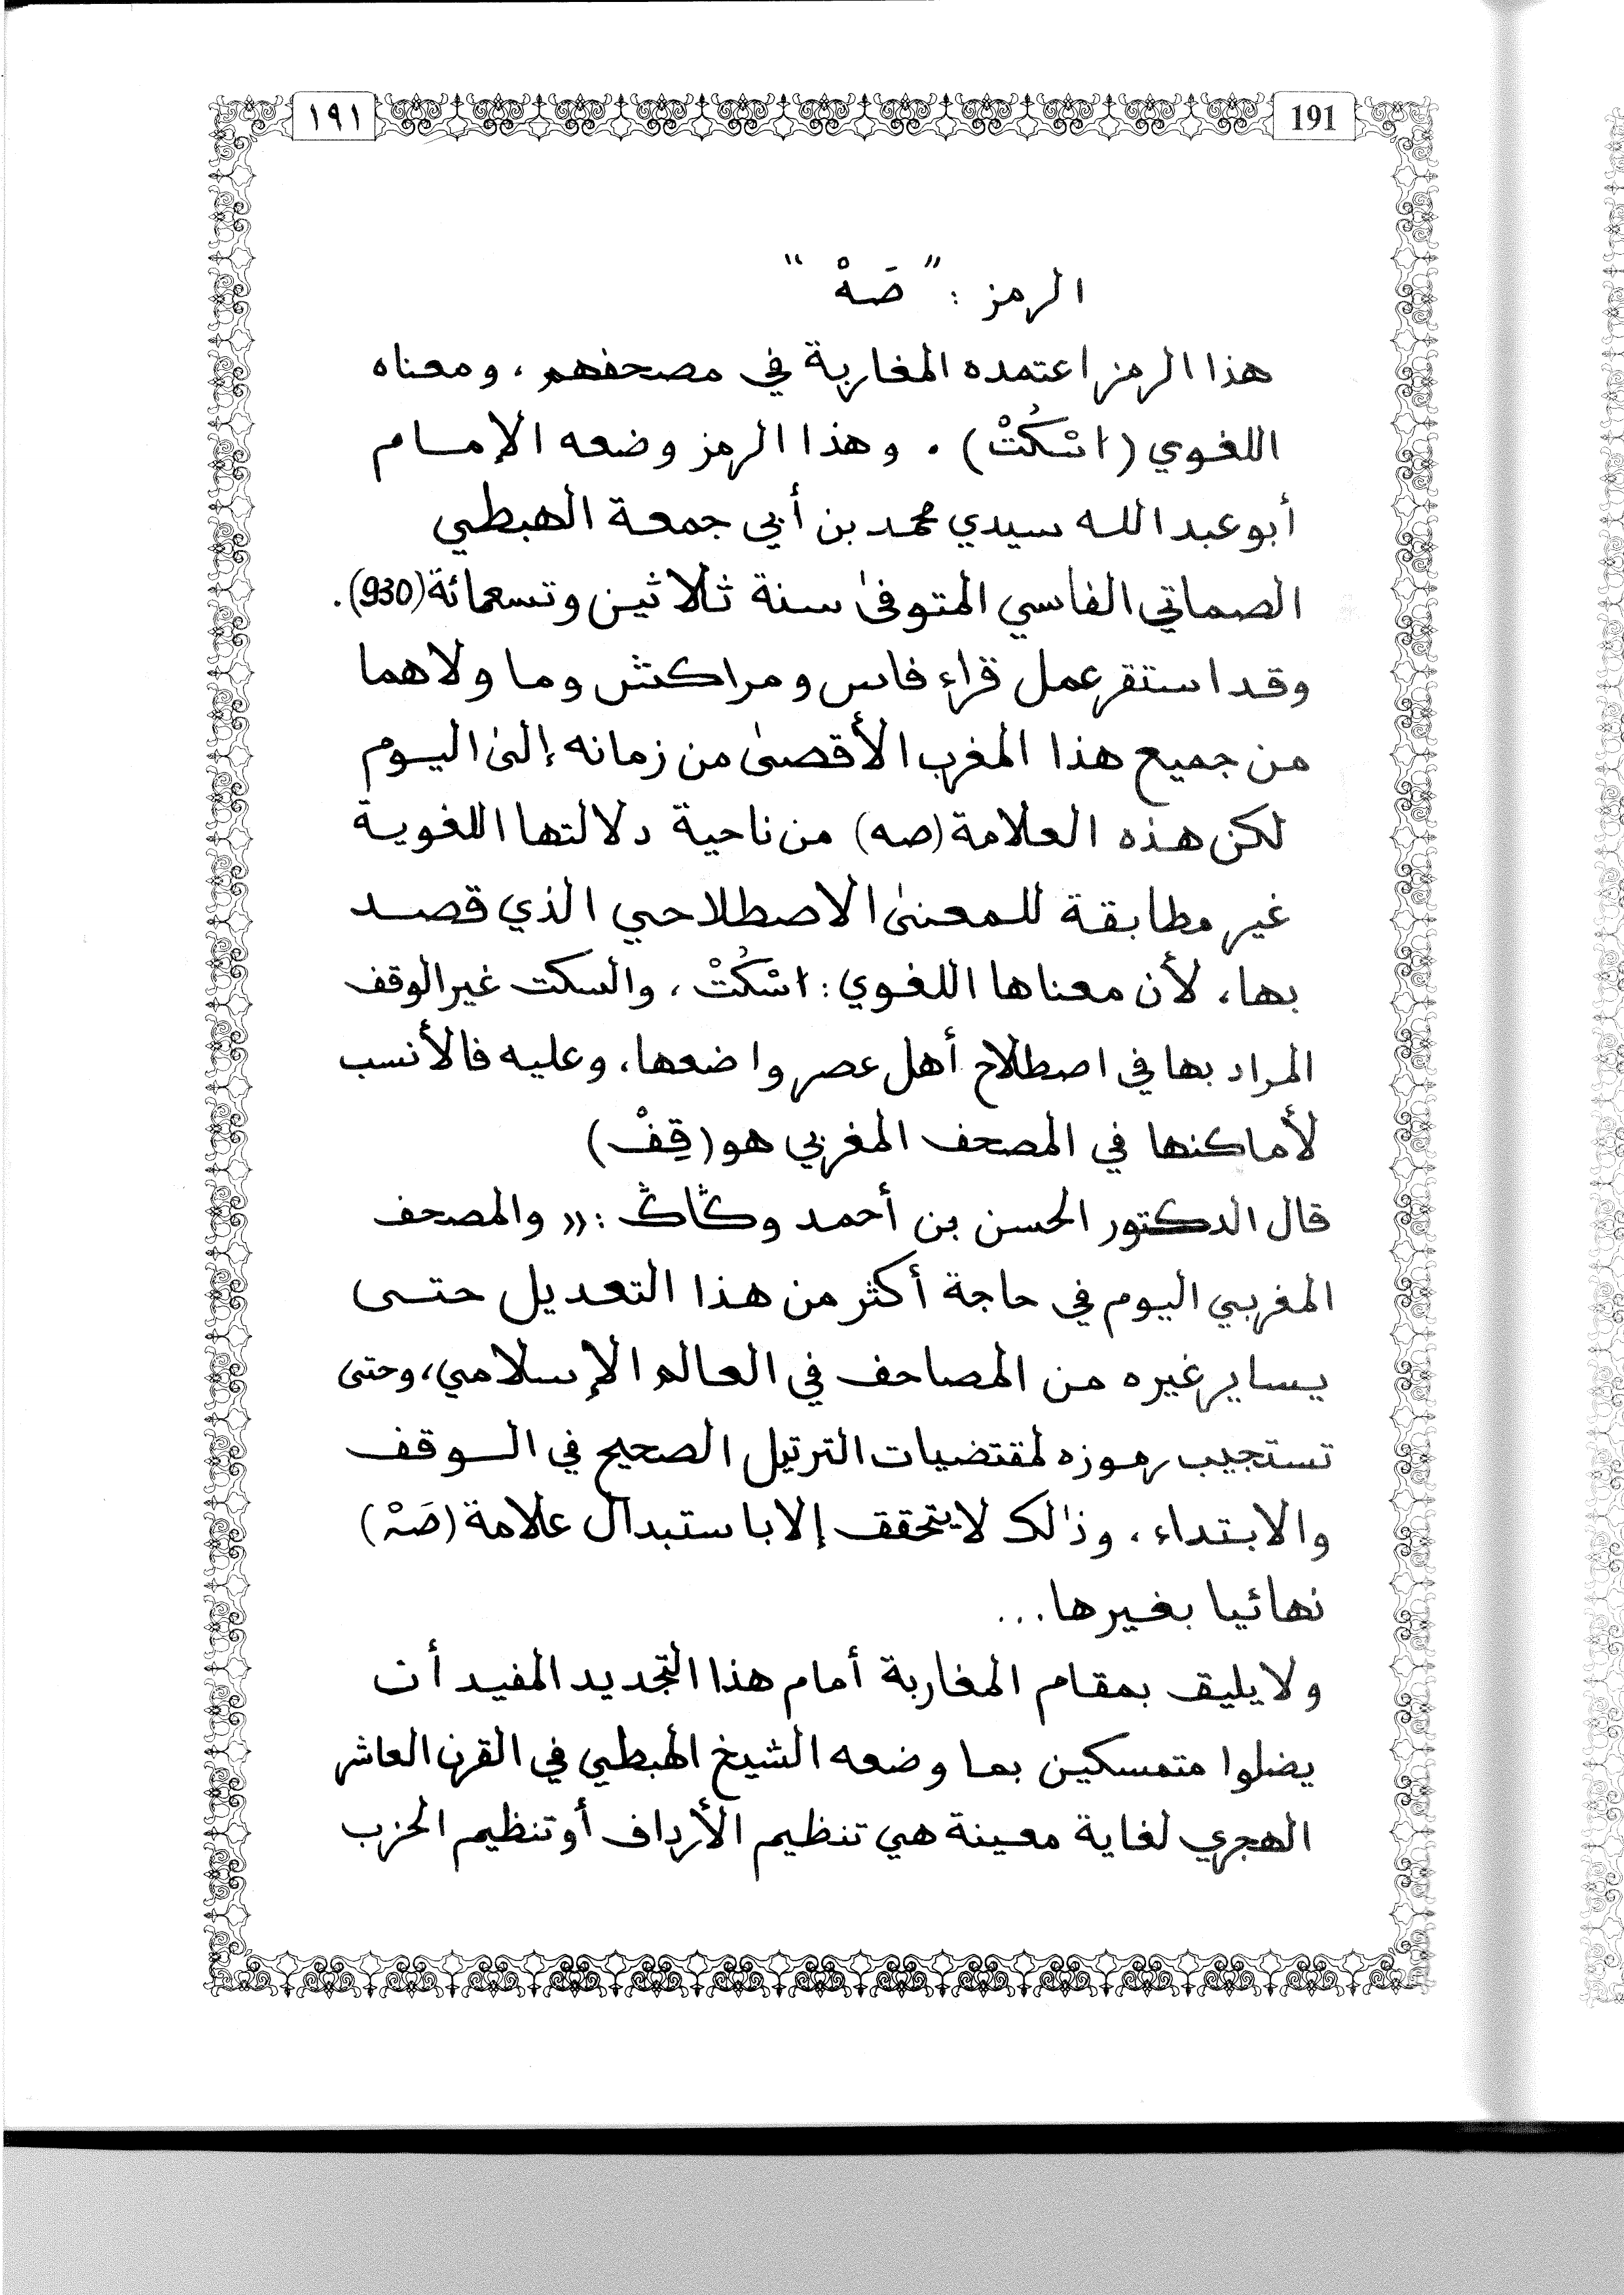 ١٩١ 191
الرمز : " صَهْ "
هذا الرمز اعتمده المغاربة في مصحفهم ، ومعناه
اللغوي (اسْكُتْ) . وهذا الرمز وضعه الإمام
أبو عبد الله سيدي محمد بن أبي جمعة الهبطي
الصماتي الفاسي المتوفىٰ سنة ثلاثين وتسعمائة (930).
وقد استقر عمل قراء فاس ومراكش وما ولاهما
من جميع هذا المغرب الأقصىٰ من زمانه إلىٰ اليوم
لكن هذه العلامة (صه) من ناحية دلالتها اللغوية
غير مطابقة للمعنىٰ الاصطلاحي الذي قصد
بها ، لأن معناها اللغوي : اسْكُتْ ، والسكت غير الوقف
المراد بها في اصطلاح أهل عصر واضعها ، وعليه فالأنسب
لأماكنها في المصحف المغربي هو (قِفْ)
قال الدكتور الحسن بن أحمد وݣاݣ : « والمصحف
المغربي اليوم في حاجة أكثر من هذا التعديل حتى
يساير غيره من المصاحف في العالم الإسلامي ، وحتى
تستجيب رموزه لمقتضيات الترتيل الصحيح في الوقف
والابتداء ، وذٰلك لا يتحقق إلا باستبدال علامة (صَهْ)
نهائيا بغيرها ...
ولا يليق بمقام المغاربة أمام هذا التجديد المفيد أن
يضلوا متمسكين بما وضعه الشيخ الهبطي في القرن العاشر
الهجري لغاية معينة هي تنظيم الأرداف أو تنظيم الحزب